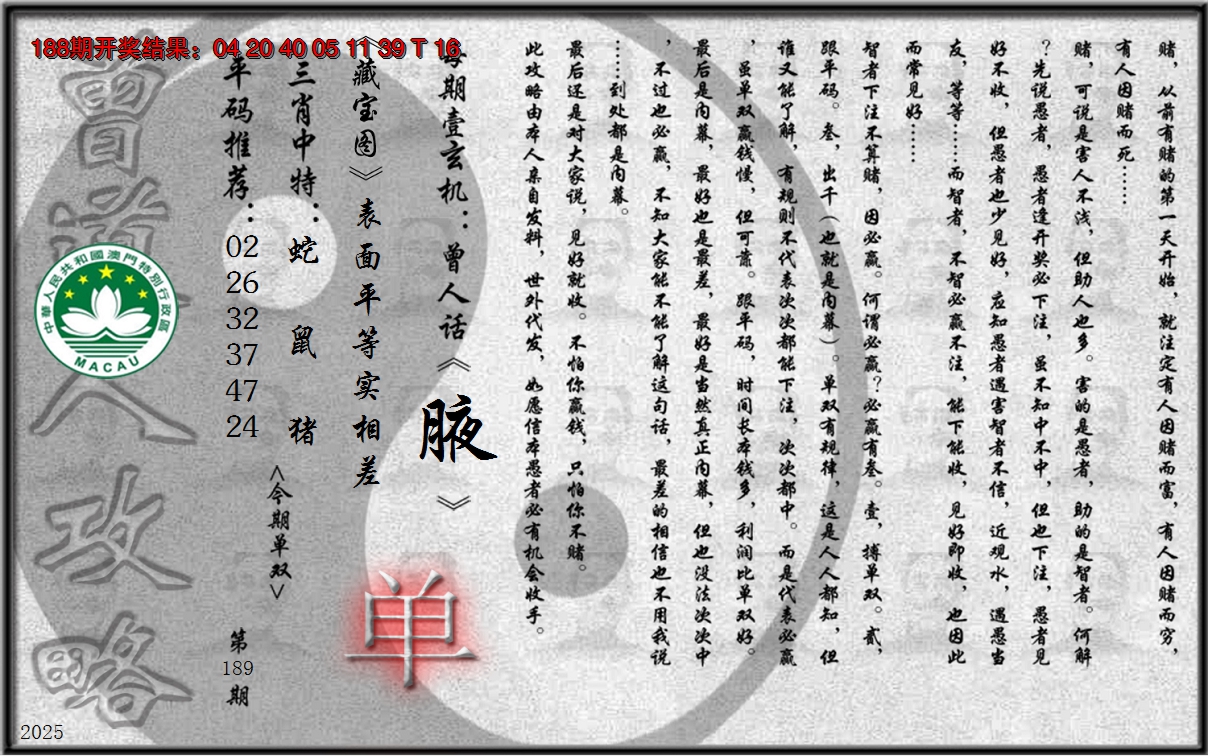 188期开奖结果：04 20 40 05 11 39 T 16
赌，从前有赌的第一天开始，就注定有人因赌而富，有人因赌而穷，
有人因赌而死……
赌，可说是害人不浅，但助人也多。害的是愚者，助的是智者。何解
？先说愚者，愚者逢开奖必下注，虽不知中不中，但也下注，愚者见
好不收，但愚者也少见好，应知愚者遇害智者不信，近观水，遇愚当
友，等等……而智者，不智必赢不注，能下能收，见好即收，也因此
而常见好……
智者下注不算赌，因必赢。何谓必赢？必赢有叁。壹，搏单双。贰，
跟平码。叁，出千（也就是内幕）。单双有规律，这是人人都知，但
谁又能了解，有规则不代表次次都能下注，次次都中。而是代表必赢
，虽单双赢钱慢，但可靠。跟平码，时间长本钱多，利润比单双好。
最后是内幕，最好也是最差，最好是当然真正内幕，但也没法次次中
，不过也必赢，不知大家能不能了解这句话，最差的相信也不用我说
……到处都是内幕。
最后还是对大家说，见好就收。不怕你赢钱，只怕你不赌。
此攻略由本人亲自发料，世外代发，如愿信本愚者必有机会收手。
每期壹玄机：曾人话《腋》
《藏宝图》表面平等实相差
单
三肖中特：蛇 鼠 猪
<今期单双>
平码推荐：
02
26
32
37
47
24
第
189
期
曾道人攻略
中華人民共和國澳門特別行政區
MACAU
2025